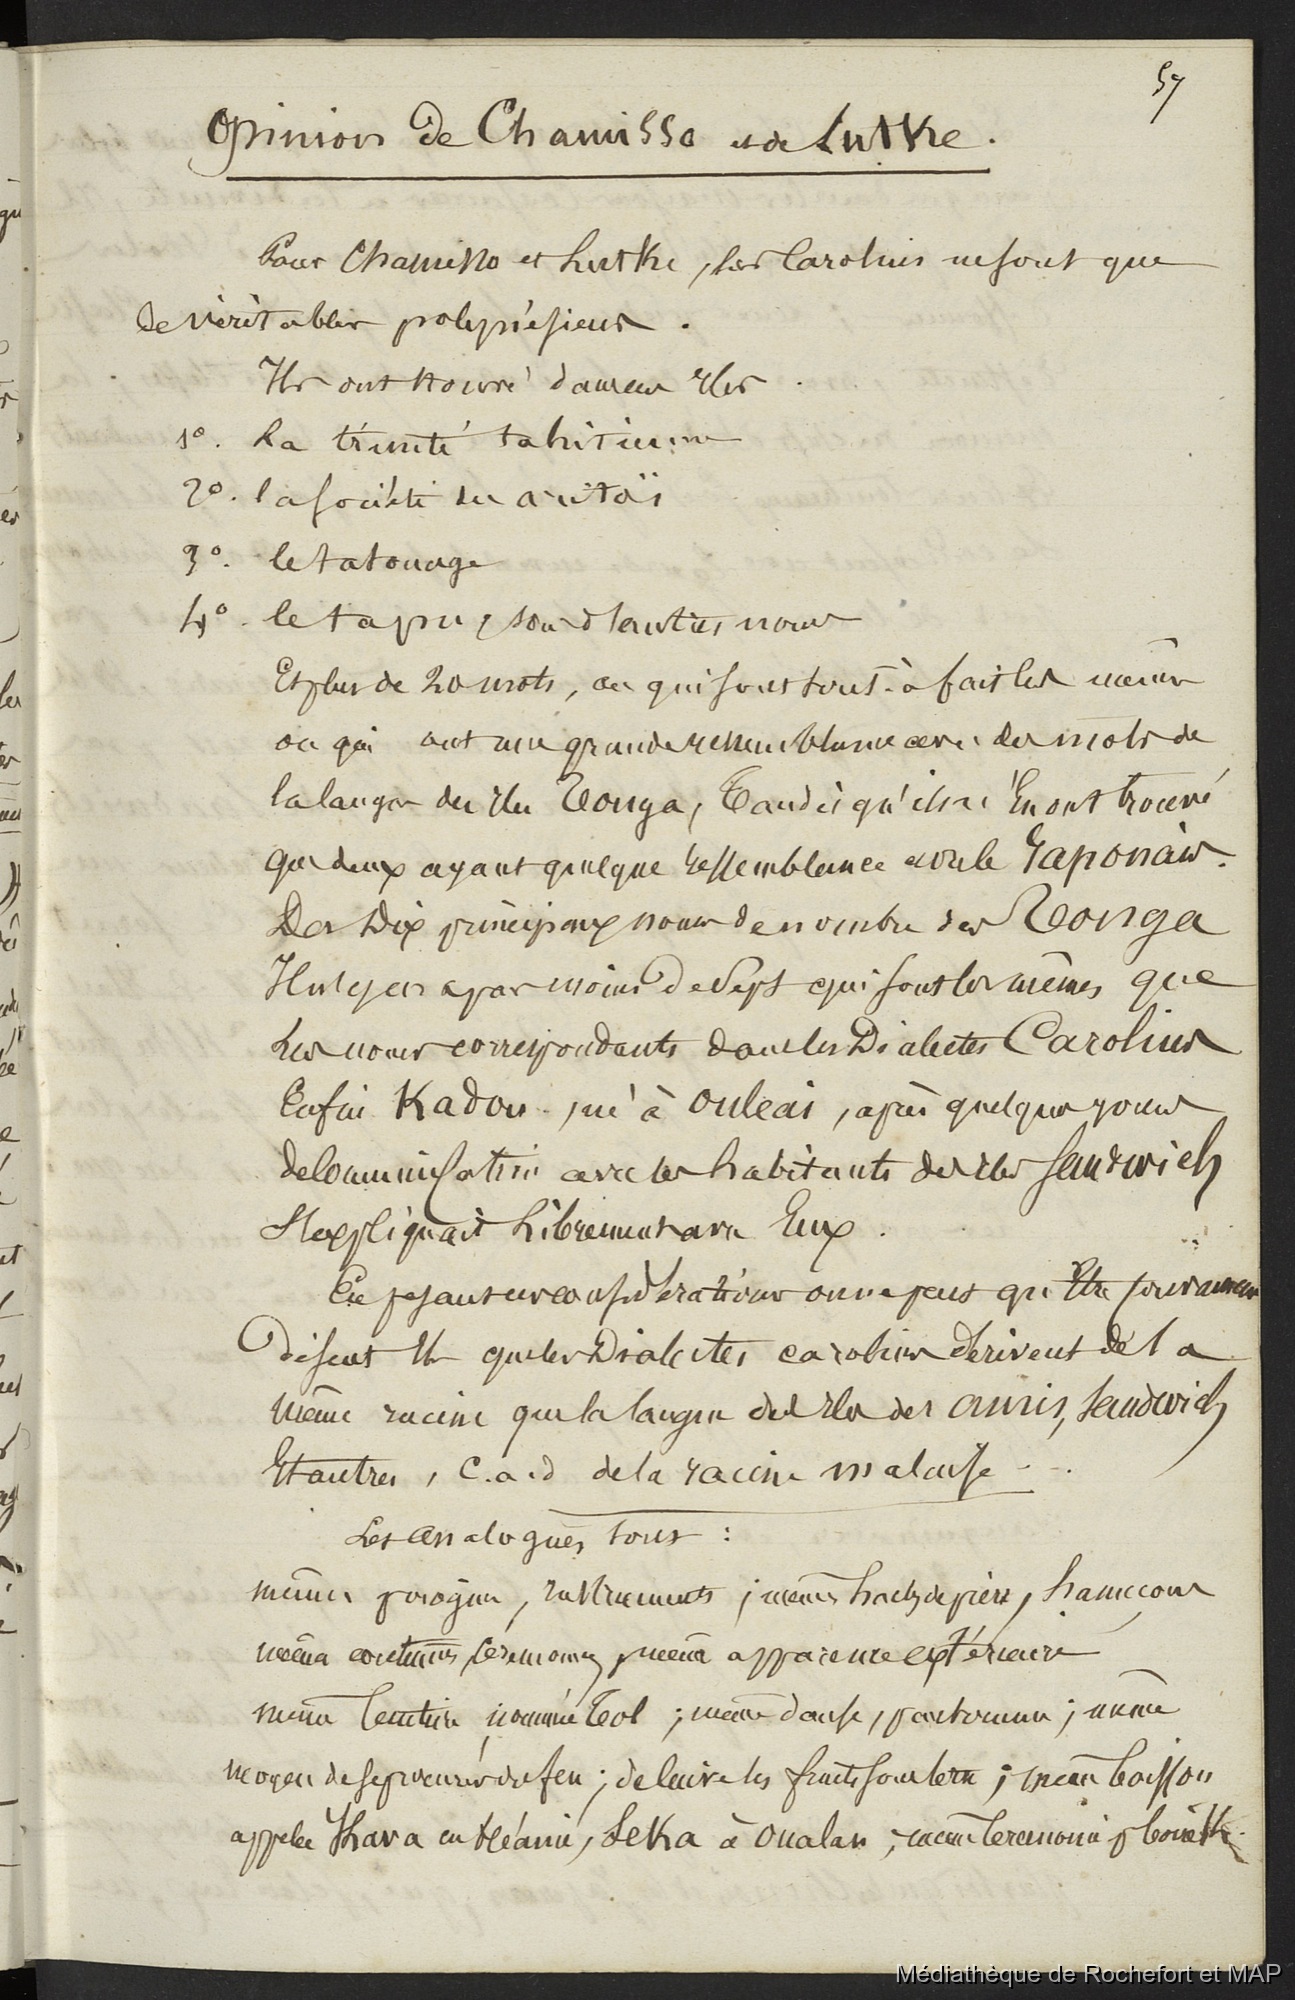 57
Opinion de Chamisso et de Lutke.
Pour Chamisso et Lutke, les Carolins ne sont que
de véritables polynésiens.
Ils ont trouvé dans ces iles
1º. La trinité tahitienne
2º. la société des aritoïs
3º. le tatouage
4º. le tapu, sous d'autres noms
Et plus de 20 mots, ou qui sont tout-à fait les mêmes
ou qui ont une grande ressemblance avec des mots de
la langue des iles Tonga, Tandis qu'ils n'en ont trouvé
que deux ayant quelque ressemblance avec le Japonais.
Des Dix principaux noms de nombre des Tonga
Il n'y en a pas moins De Sept qui sont les mêmes que
Les noms correspondants dans les Dialectes Carolins
Enfin Kadou, né à Ouleai, après quelques jours
de Communication avec les habitants des iles Sandwich
S'expliquait Librement avec Eux.
En pesant ces considérations on ne peut qu'Etre
Disent Ils que les Dialectes carolins Dérivent de la
même racine que la langue des iles des amis, Sandwich
Et autres, c.a.d de la racine malaise
Les analogues sont :
mêmes pirogues, instruments ; mêmes hachs de pierre, hameçons
mêmes coutumes, Cérémonies, même apparence extérieure
même Ceinture nommée Tol ; même danse, pantomime ; même
moyen de se procurer du feu ; de Cuire les fruits sous terre ; même boisson
appelée Khava en Océanie, Seka à Oualan ; même Cérémonie p
Médiathèque de Rochefort et MAP